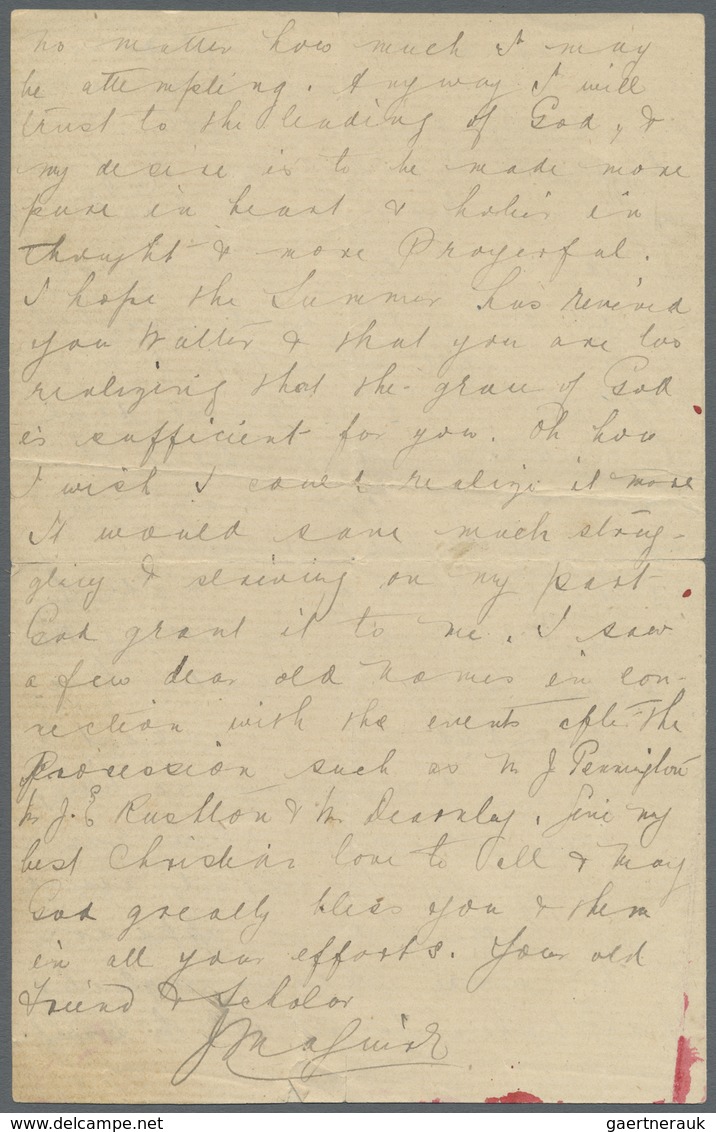 no matter how much I may
be attempting. Anyway I will
trust to the leading of God, &
my desire is to be made more
pure in heart & holier in
thought & more Prayerful.
I hope the Summer has revived
you Walter & that you are too
realizing that the grace of God
is sufficient for you. Oh how
I wish I could realize it more
It would save much strug-
gling & striving on my part
God grant it to me. I saw
a few dear old names in con-
nection with the events after the
Procession such as Mr J Pennington
Mr J. E Rushton & Mr Dearnley. Give my
best Christian love to all & may
God greatly bless you & them
in all your efforts. Your old
Friend & Scholar
J Maguire
gaertnerauk